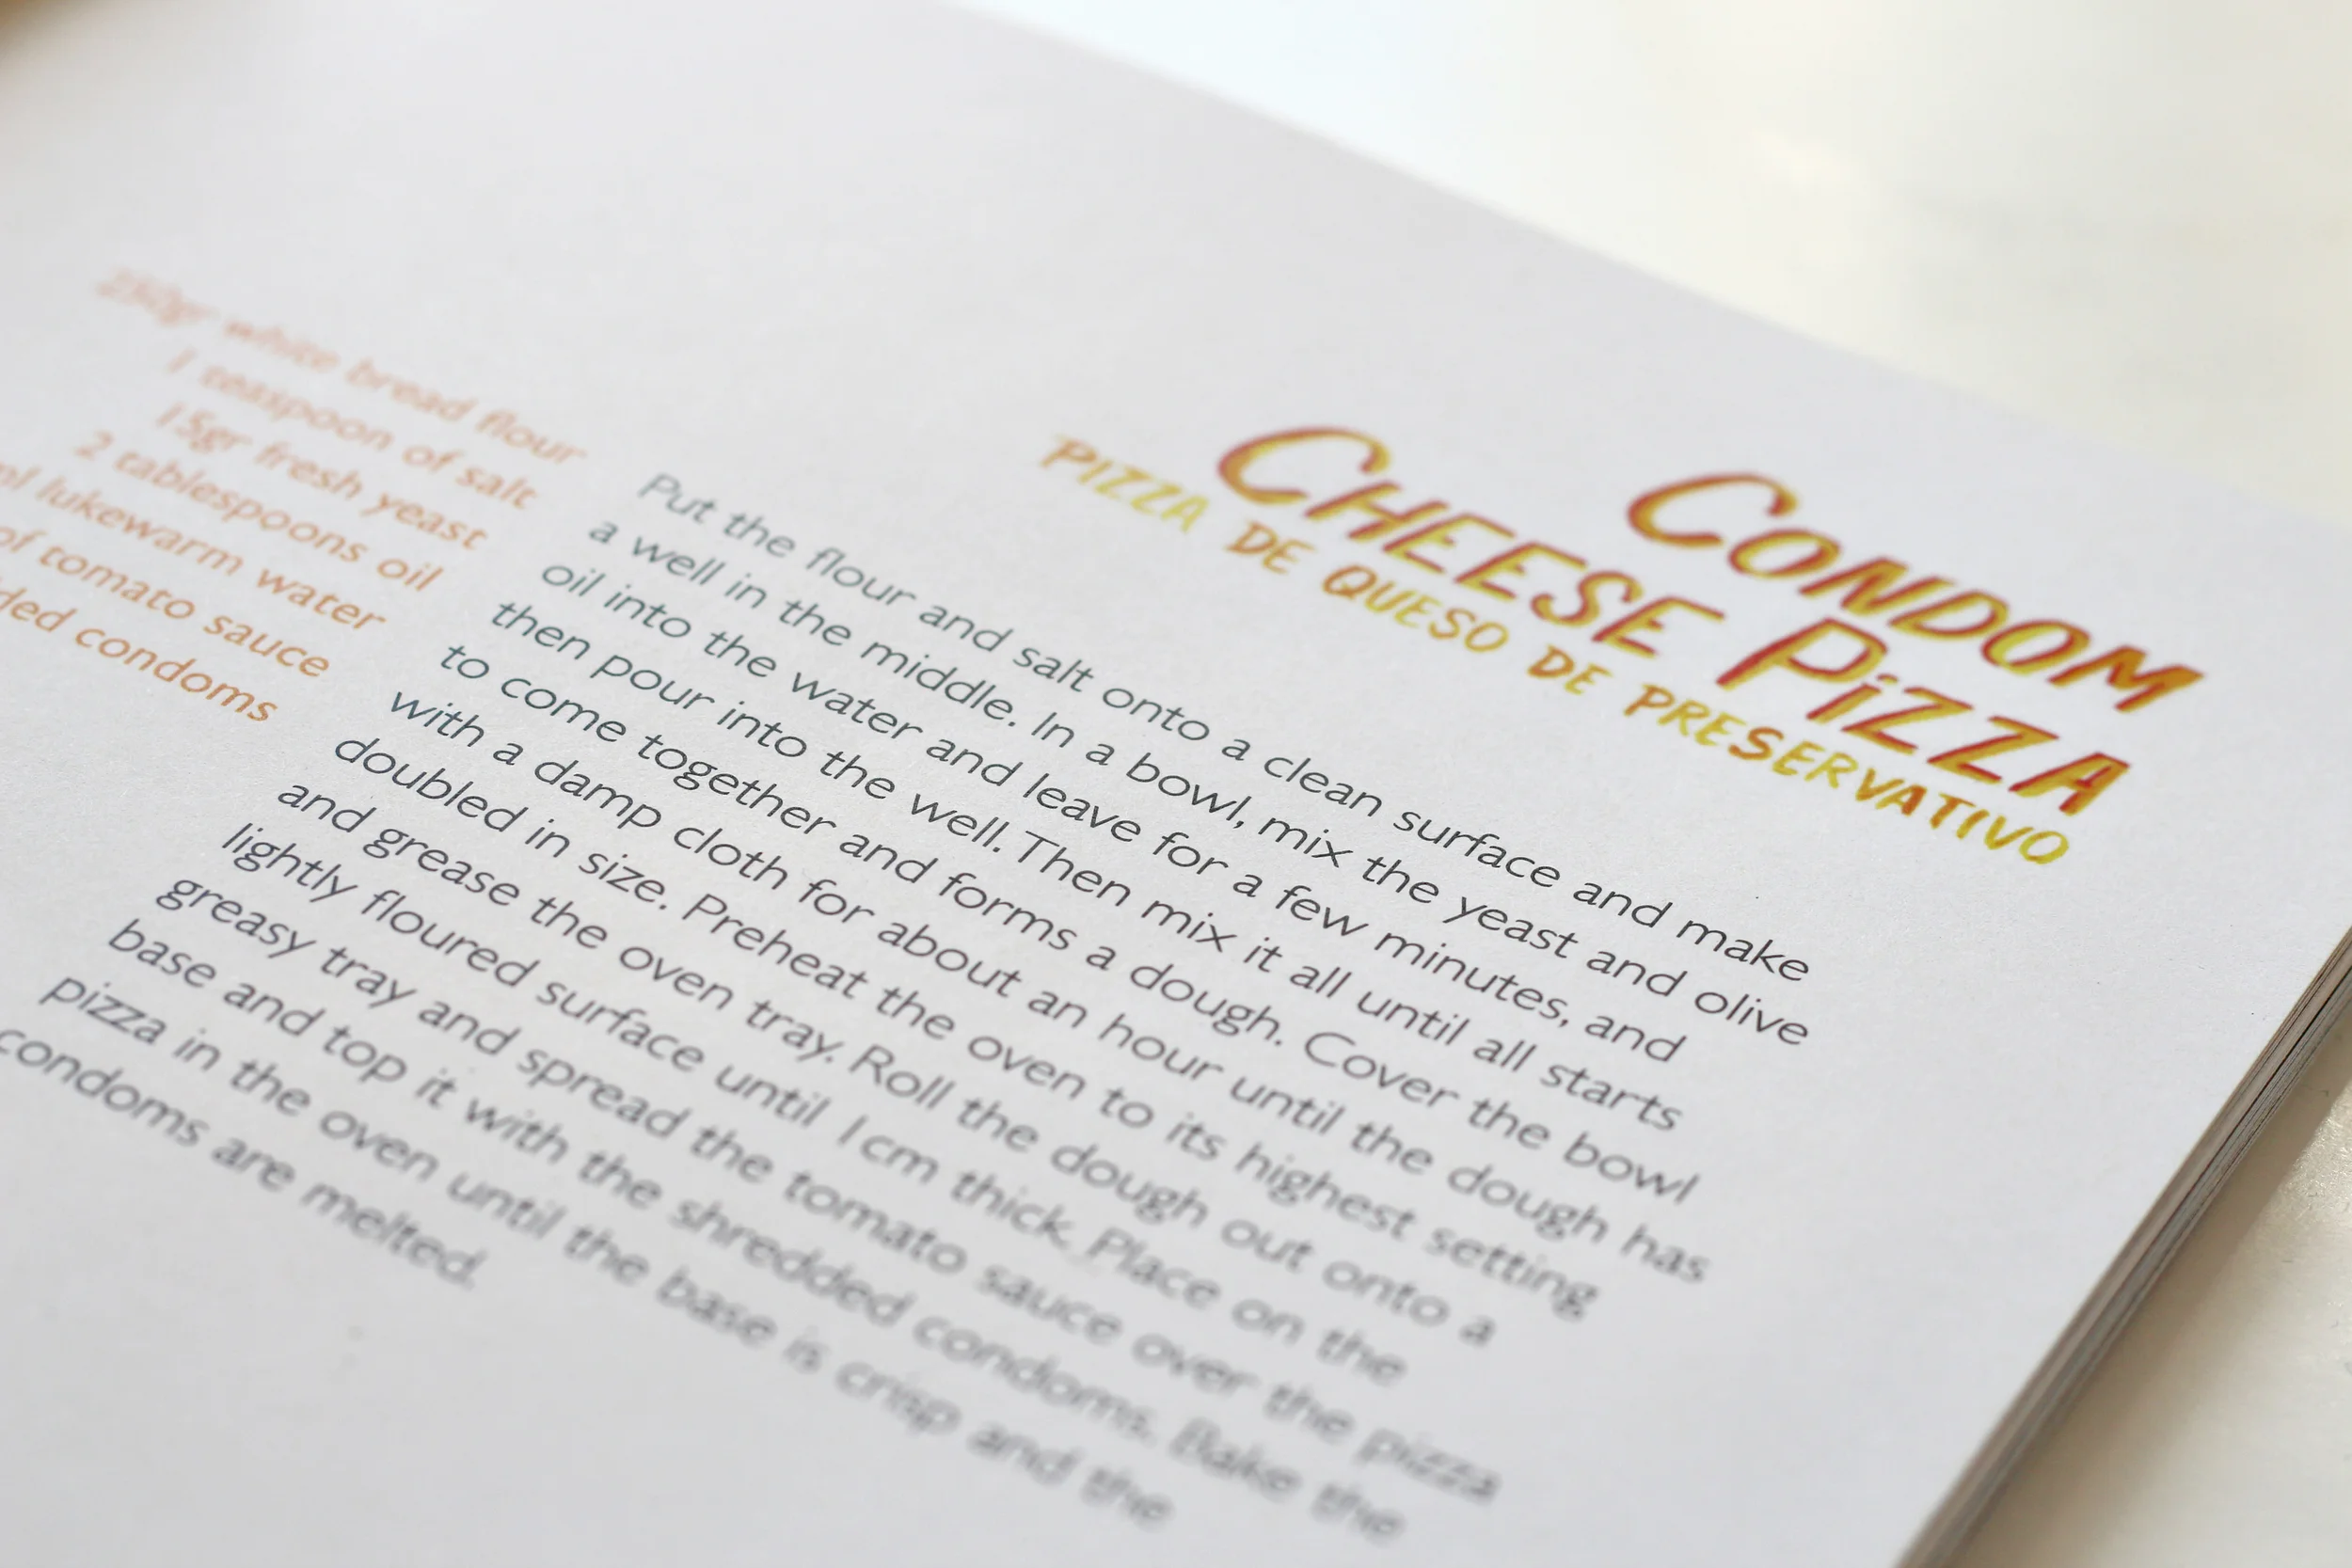 CONDOM
CHEESE PiZZA
PIZZA DE QUESO DE PRESERVATIVO
250gr white bread flour
1 teaspoon of salt
15gr fresh yeast
2 tablespoons oil
ml lukewarm water
of tomato sauce
condoms
Put the flour and salt onto a clean surface and make
a well in the middle. In a bowl, mix the yeast and olive
oil into the water and leave for a few minutes, and
then pour into the well. Then mix it all until all starts
to come together and forms a dough. Cover the bowl
with a damp cloth for about an hour until the dough has
doubled in size. Preheat the oven to its highest setting
and grease the oven tray. Roll the dough out onto a
lightly floured surface until 1cm thick. Place on the
greasy tray and spread the tomato sauce over the pizza
base and top it with the shredded condoms. Bake the
pizza in the oven until the base is crisp and the
condoms are melted.